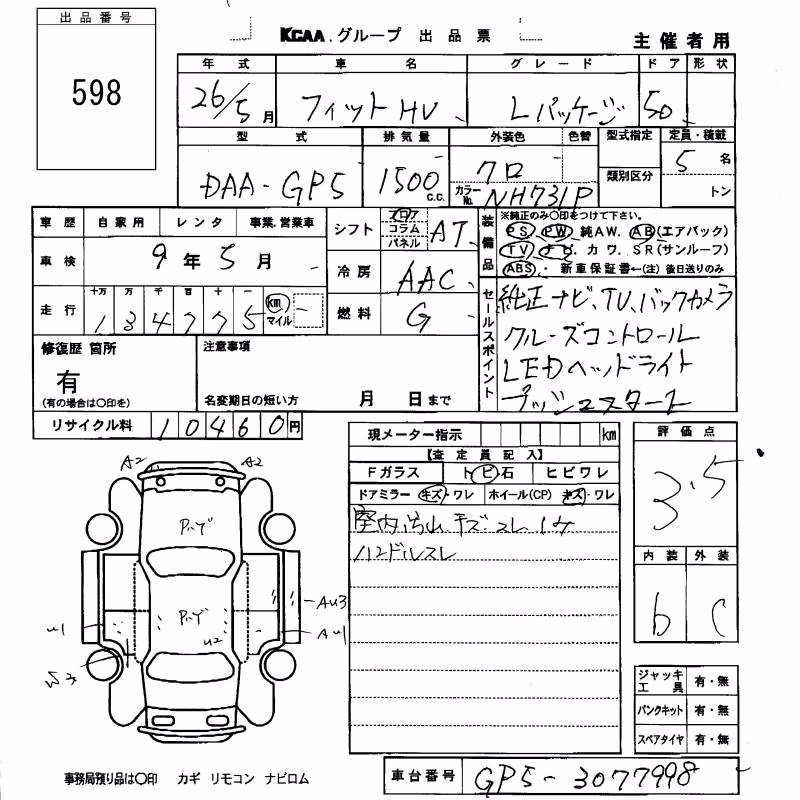 出品番号
598
KCAA.グループ 出品票
主催者用
年式 車名 グレード ドア 形状
26/5月 フィットHV Lパッケージ 5D
型式 排気量 外装色 色替 型式指定 定員・積載
類別区分
DAA-GP5 1500 c.c. クロ 5名
カラーNo. NH731P トン
車歴 自家用 レンタ 事業.営業車
シフト フロア コラム パネル AT
装備品
※純正のみ○印をつけて下さい。
PS. PW 純AW. AB(エアバック)
TV. ナビ. カワ. SR(サンルーフ)
ABS. 新車保証書←(注)後日送りのみ
車検 9年5月
冷房 AAC
走行 十万 万 千 百 十 一
134775 km マイル
燃料 G
セールスポイント
純正ナビ、TV、バックカメラ
クルーズコントロール
LEDヘッドライト
プッシュスタート
修復歴 箇所
有
(有の場合は○印を)
注意事項
名変期日の短い方 月 日まで
リサイクル料 10460円
現メーター指示 km
【査定員記入】
Fガラス トビ石 ヒビワレ
ドアミラー キズ・ワレ ホイール(CP) キズ・ワレ
室内汚れ キズ スレ シミ
ハンドルスレ
評価点
3.5
内装 外装
b C
A2 A2
P.Y
P.Y
U2
U1
AU3
AU1
ジャッキ工具 有・無
パンクキット 有・無
スペアタイヤ 有・無
事務局預り品は○印 カギ リモコン ナビロム
車台番号 GP5-3077998